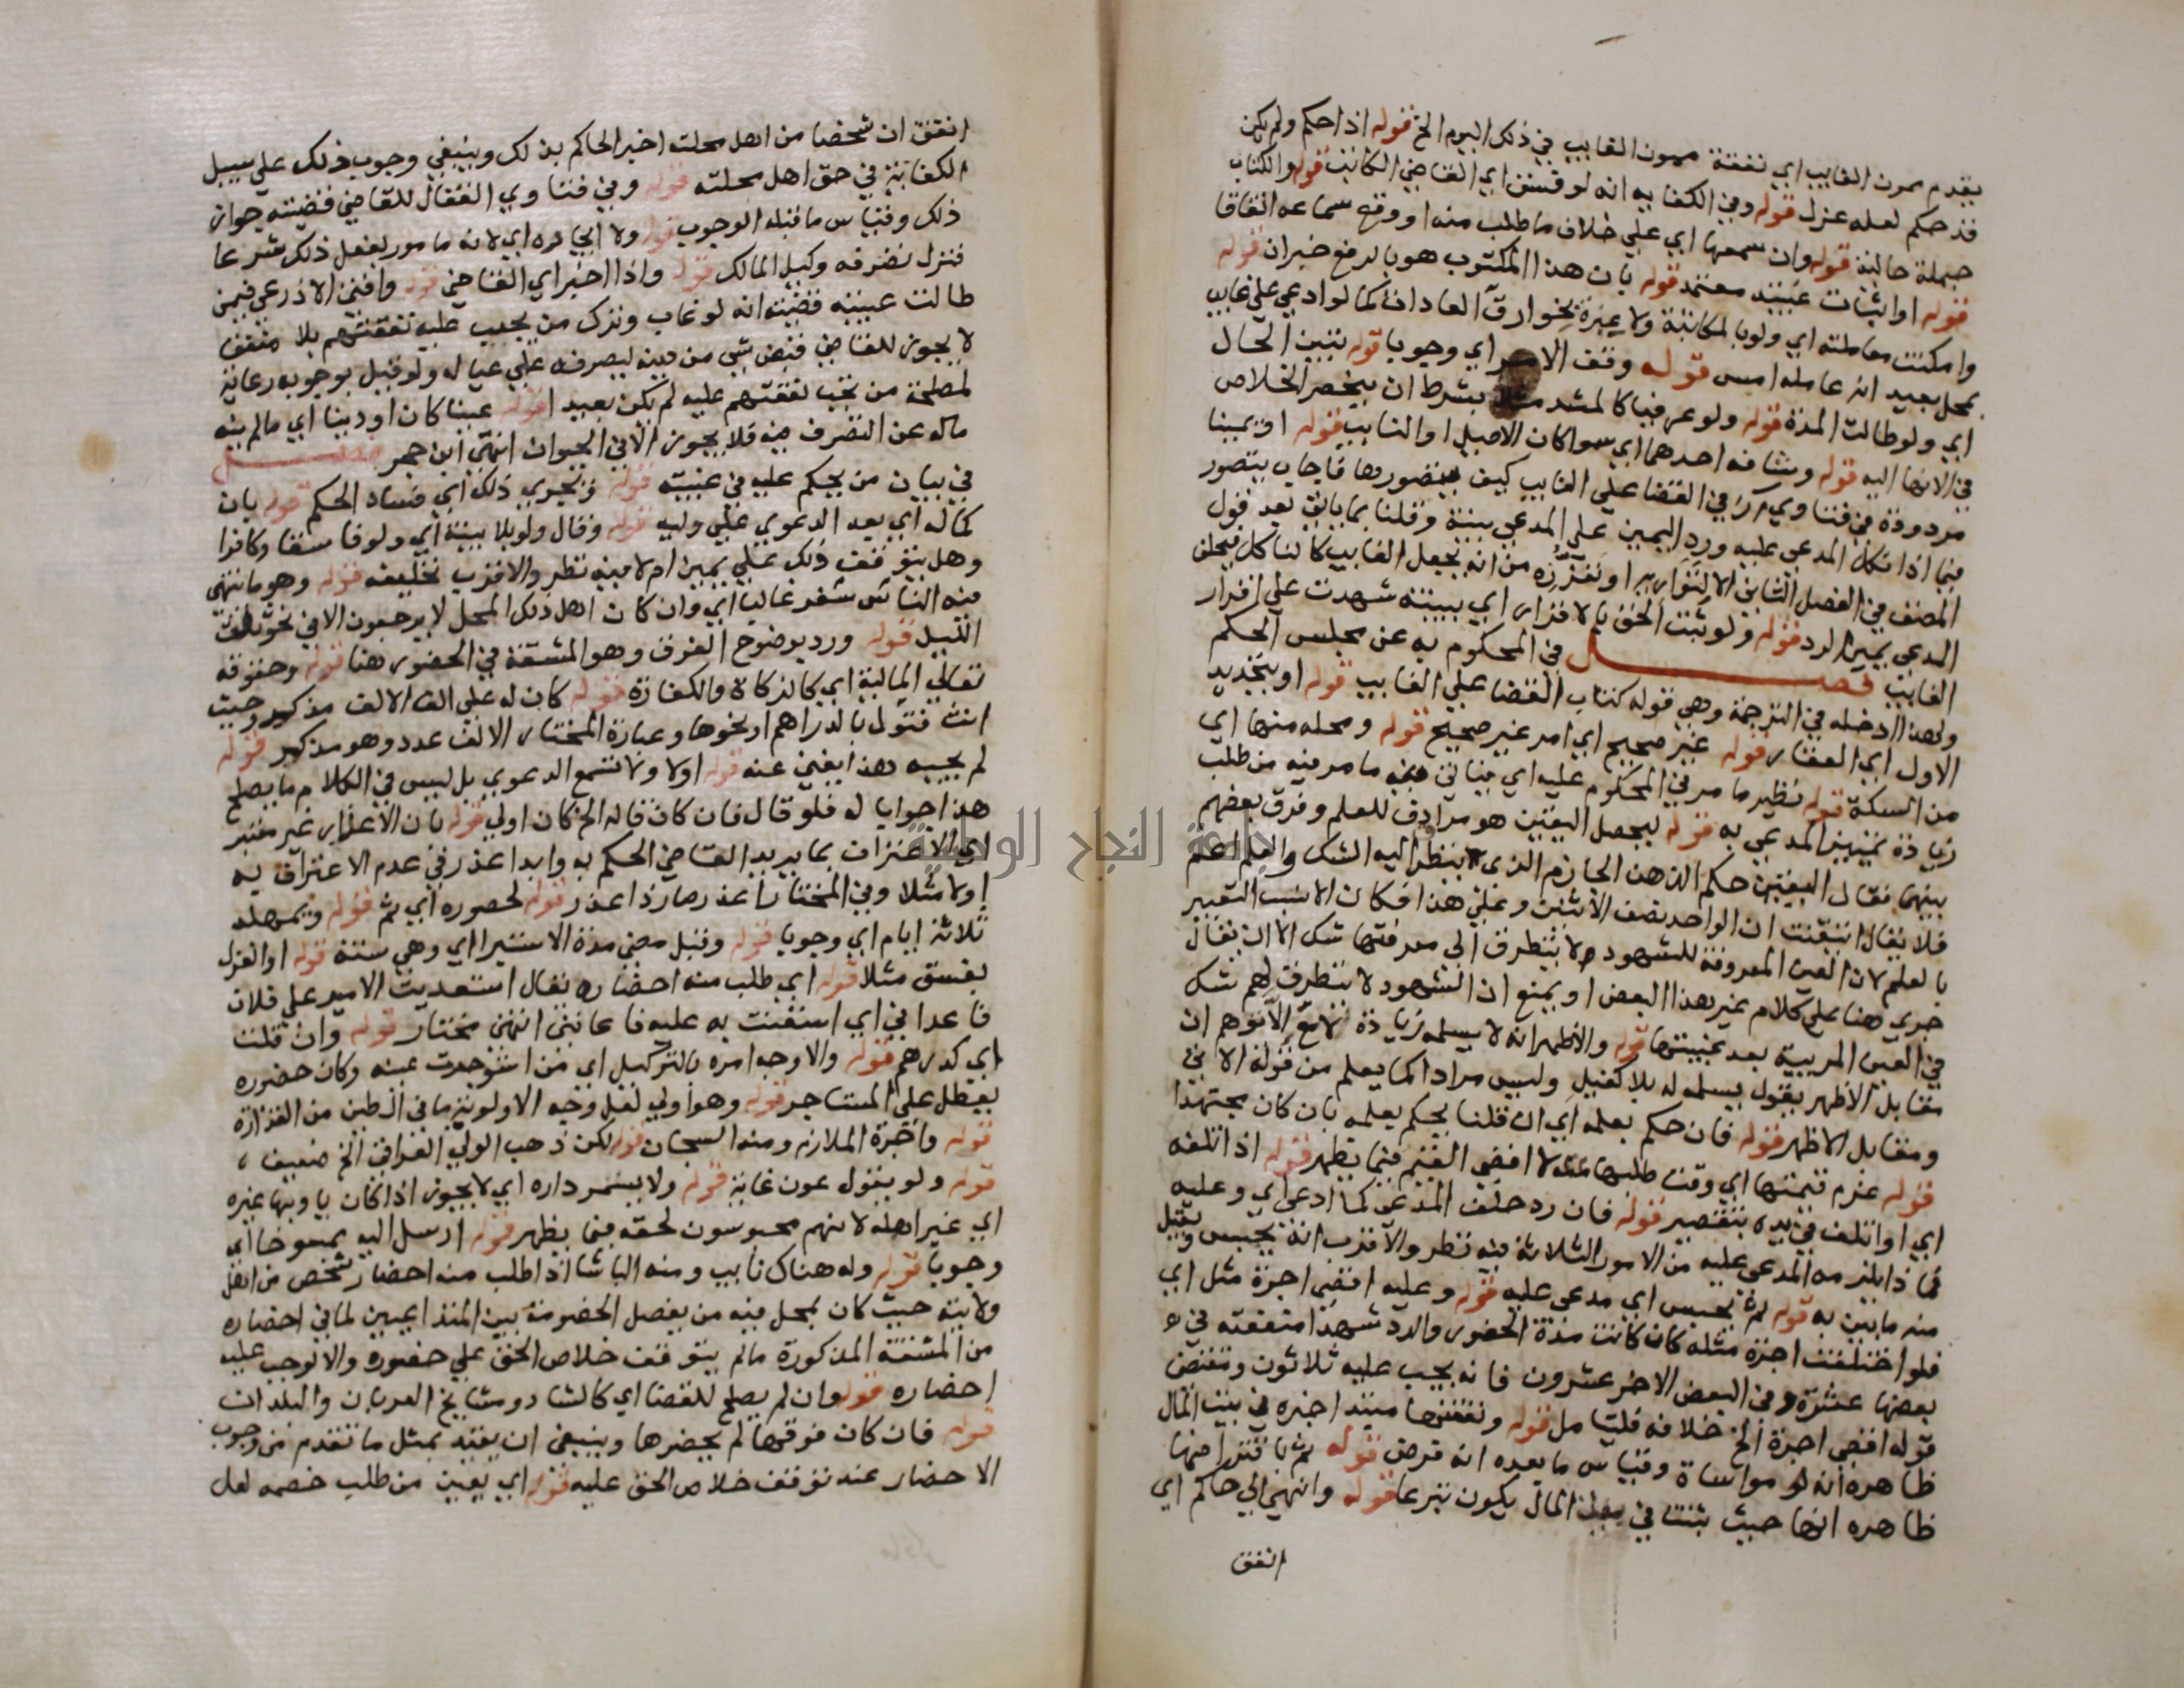 يقدم ممون الغايب اي نفقة ممون الغايب في ذلك اليوم الخ قوله اذا حكم ولم يكن
قد حكم لعله عزل قوله وفي الكفاية انه لو فسق اي القاضي الكاتب قوله والكتاب
جملة حالية قوله وان سمعها اي علي خلاف ما طلب منه او وقع سماعه اتفاقا
قوله او اثبات عنيند معتمد قوله بان هذا المكتوب هو بالرفع خبر ان قوله
وامكنت معاملته اي ولو بالمكاتبة ولا عبرة بخوارق العادات كما لو ادعي علي غايب
بمحل بعيد انه عامله امس قوله وقف الامر اي وجوبا قوله تبين الحال
اي ولو طالت المدة قوله ولو عرفيا كالمشد مثلا بشرط ان ينحصر الخلاص
في الانها اليه قوله وشافه احدهما اي سوا كان الاصيل او النايب قوله او يمينا
مردودة في فتاوي م ر في القضا علي الغايب كيف يتصور وها فاجاب يتصور
فيما اذا نكل المدعي عليه ورد اليمين علي المدعي ببينة وقلنا بما ياتي بعد قول
المصنف في الفصل الثاني الا لتواريه او تعززه من انه يجعل الغايب كالناكل فيحلف
المدعي يمين الرد قوله ولو ثبت الحق بالاقرار اي ببينة شهدت علي اقرار
الغايب فصل في المحكوم به عن مجلس الحكم
ولهذا ادخله في الترجمة وهي قوله كتاب القضا علي الغايب قوله او بتحديد
الاول اي العقار قوله غير صحيح اي امر غير صحيح قوله ومحله منها اي
من السكة قوله نظير ما مر في المحكوم عليه اي فياتي فيه ما مر فيه من طلب
زيادة تمييز المدعي به قوله ليحصل اليقين هو مرادف للعلم وفرق بعضهم
بينهما فقال اليقين حكم الذهن الجازم الذي لا يتطرق اليه الشك والعلم اعم
فلا يقال تيقنت ان الواحد نصف الاثنين وعلي هذا فكان الانسب التعبير
بالعلم لان العين المعروفة للشهود لا يتطرق الي معرفتها شك الا ان يقال
جري هنا علي كلام غير هذا البعض او يمنع ان الشهود لا يتطرق لهم شك
في العين المريبة بعد غيبتها قوله والاظهر انه لا يسلمه زيادة لا مع الا توهم ان
مقابل الاظهر يقول يسلمه له بلا كفيل وليس مرادا كما يعلم من قوله الاتي
ومقابل الاظهر قوله فان حكم بعلمه اي ان قلنا يحكم بعلمه بان كان مجتهدا
قوله غرم قيمتها اي وقت طلبها لا اقصي القيم فيما يظهر قوله اذا تلفه
اي او اتلف في يده بتقصير قوله فان رد حلف المدعي كما ادعي اي وعليه
فماذا يلزمه المدعي عليه من الامور الثلاثة فيه نظر والاقرب انه يحبس ويقبل
منه ما بين به قوله لم يحبس اي مدعي عليه قوله وعليه اقصي اجرة مثل اي
فلو اختلفت اجرة مثله كان كانت مدة الحضور والرد شهرا منفعته في
بعضها عشرة وفي البعض الاخر عشرون فانه يجب عليه ثلاثون ومقتضي
قوله اقصي اجرة الخ خلافه فليتامل قوله ونفقتها حينيذ اجره في بيت المال
ظاهره انه لو مواساة وقياس ما بعده انه قرض قوله ثم باقتراضها
ظاهره انها حيث ثبتت في بيت المال يكون تبرعا قوله وانهي الي حاكم اي
اتفق
اتفق ان شخصا من اهل محلته اخبر الحاكم بذلك وينبغي وجوب ذلك علي سبيل
الكفاية في حق اهل محلته قوله وفي فتاوي القفال للقاضي قضيته جواز
ذلك وقياس ما قبله الوجوب قوله ولا اجباره اي لانه مامور بفعل ذلك شرعا
فنزل تصرفه وكيل المالك قوله واذا اخبر اي القاضي قوله وافتي الاذرعي فيمن
طالت غيبته قضيته انه لو غاب وترك من يجب عليه نفقتهم بلا منفق
لا يجوز للقاضي قبض شي من دينه ليصرفه علي عياله ولو قيل بوجوبه رعاية
لمصلحة من تجب نفقتهم عليه لم يكن بعيدا قوله عينا كان او دينا اي مالم ينه
ماله عن التصرف فيه فلا يجوز الا في الحيوان انتهي ابن حجر فصل
في بيان من يحكم عليه في غيبته قوله ويجري ذلك اي فساد الحكم قوله بان
كماله اي بعد الدعوي علي وليه قوله وقال ولو بلا بينة اي ولو فاسقا وكافرا
وهل يتوقف ذلك علي يمين ام لا فيه نظر والاقرب تحليفه قوله وهو ما تنتهي
فيه الناس سفر غالبا اي وان كان اهل ذلك المحل لا يرجعون الا في نحو ثلث
الليل قوله ورد بوضوح الفرق وهو المشقة في الحضور هنا قوله وحقوقه
تعالي المالية اي كالزكاة والكفارة قوله كان له علي الف الالف مذكر وحيث
انث فتؤل بالدراهم او نحوها وعبارة المختار الالف عدد وهو مذكر قوله
لم يجبه هذا يغني عنه قوله اولا ولا تسمع الدعوي بل ليس في الكلام ما يصلح
هذا جوابا له فلو قال فان كان قاله الخ كان اولي قوله بان الاعذار غير معتبر
اي الاعتراف بما يريد القاضي الحكم به وابدا عذر في عدم الاعتراف به
اولا مثلا وفي المختار اعذر صار ذا عذر قوله لحضوره اي ثم قوله ويمهله
ثلاثة ايام اي وجوبا قوله وقبل مضي مدة الاستبرا اي وهي سنة قوله او العزل
بفسق مثلا قوله اي طلب منه احضاره يقال استعديت الامير علي فلان
فاعداني اي استعنت به عليه فاعانني انتهي مختار قوله وان قلت
اي كدرهم قوله والاوجه امره بالتوكيل اي من استوجرت عينه وكان حضوره
يعطل علي المستاجر قوله وهو اولي لعل وجه الاولوية ما في الطين من القذارة
قوله واجرة الملازم ومنه السجان قوله لكن ذهب الولي العراقي الخ ضعيف
قوله ولو بقول عون غاية قوله ولا يسمر داره اي لا يجوز اذا كان ياويها غيره
اي غير اهله لانهم محبوسون لحقه فيما يظهر قوله ارسل اليه ممسوخا اي
وجوبا قوله وله هناك نايب ومنه الباشا اذا طلب منه احضار شخص من اهل
ولايته حيث كان بمحل فيه من يفصل الخصومة بين المتداعيين لما في احضاره
من المشقة المذكورة مالم يتوقف خلاص الحق علي حضوره والا توجب عليه
احضاره قوله وان لم يصلح للقضا اي كالشاد ومشايخ العربان والبلدان
قوله فان كان فوقها لم يحضرها وينبغي ان يقيد بمثل ما تقدم من وجوب
الاحضار عند توقف خلاص الحق عليه قوله اي يعين من طلب خصمه لعل
جامعة النجاح الوطنية